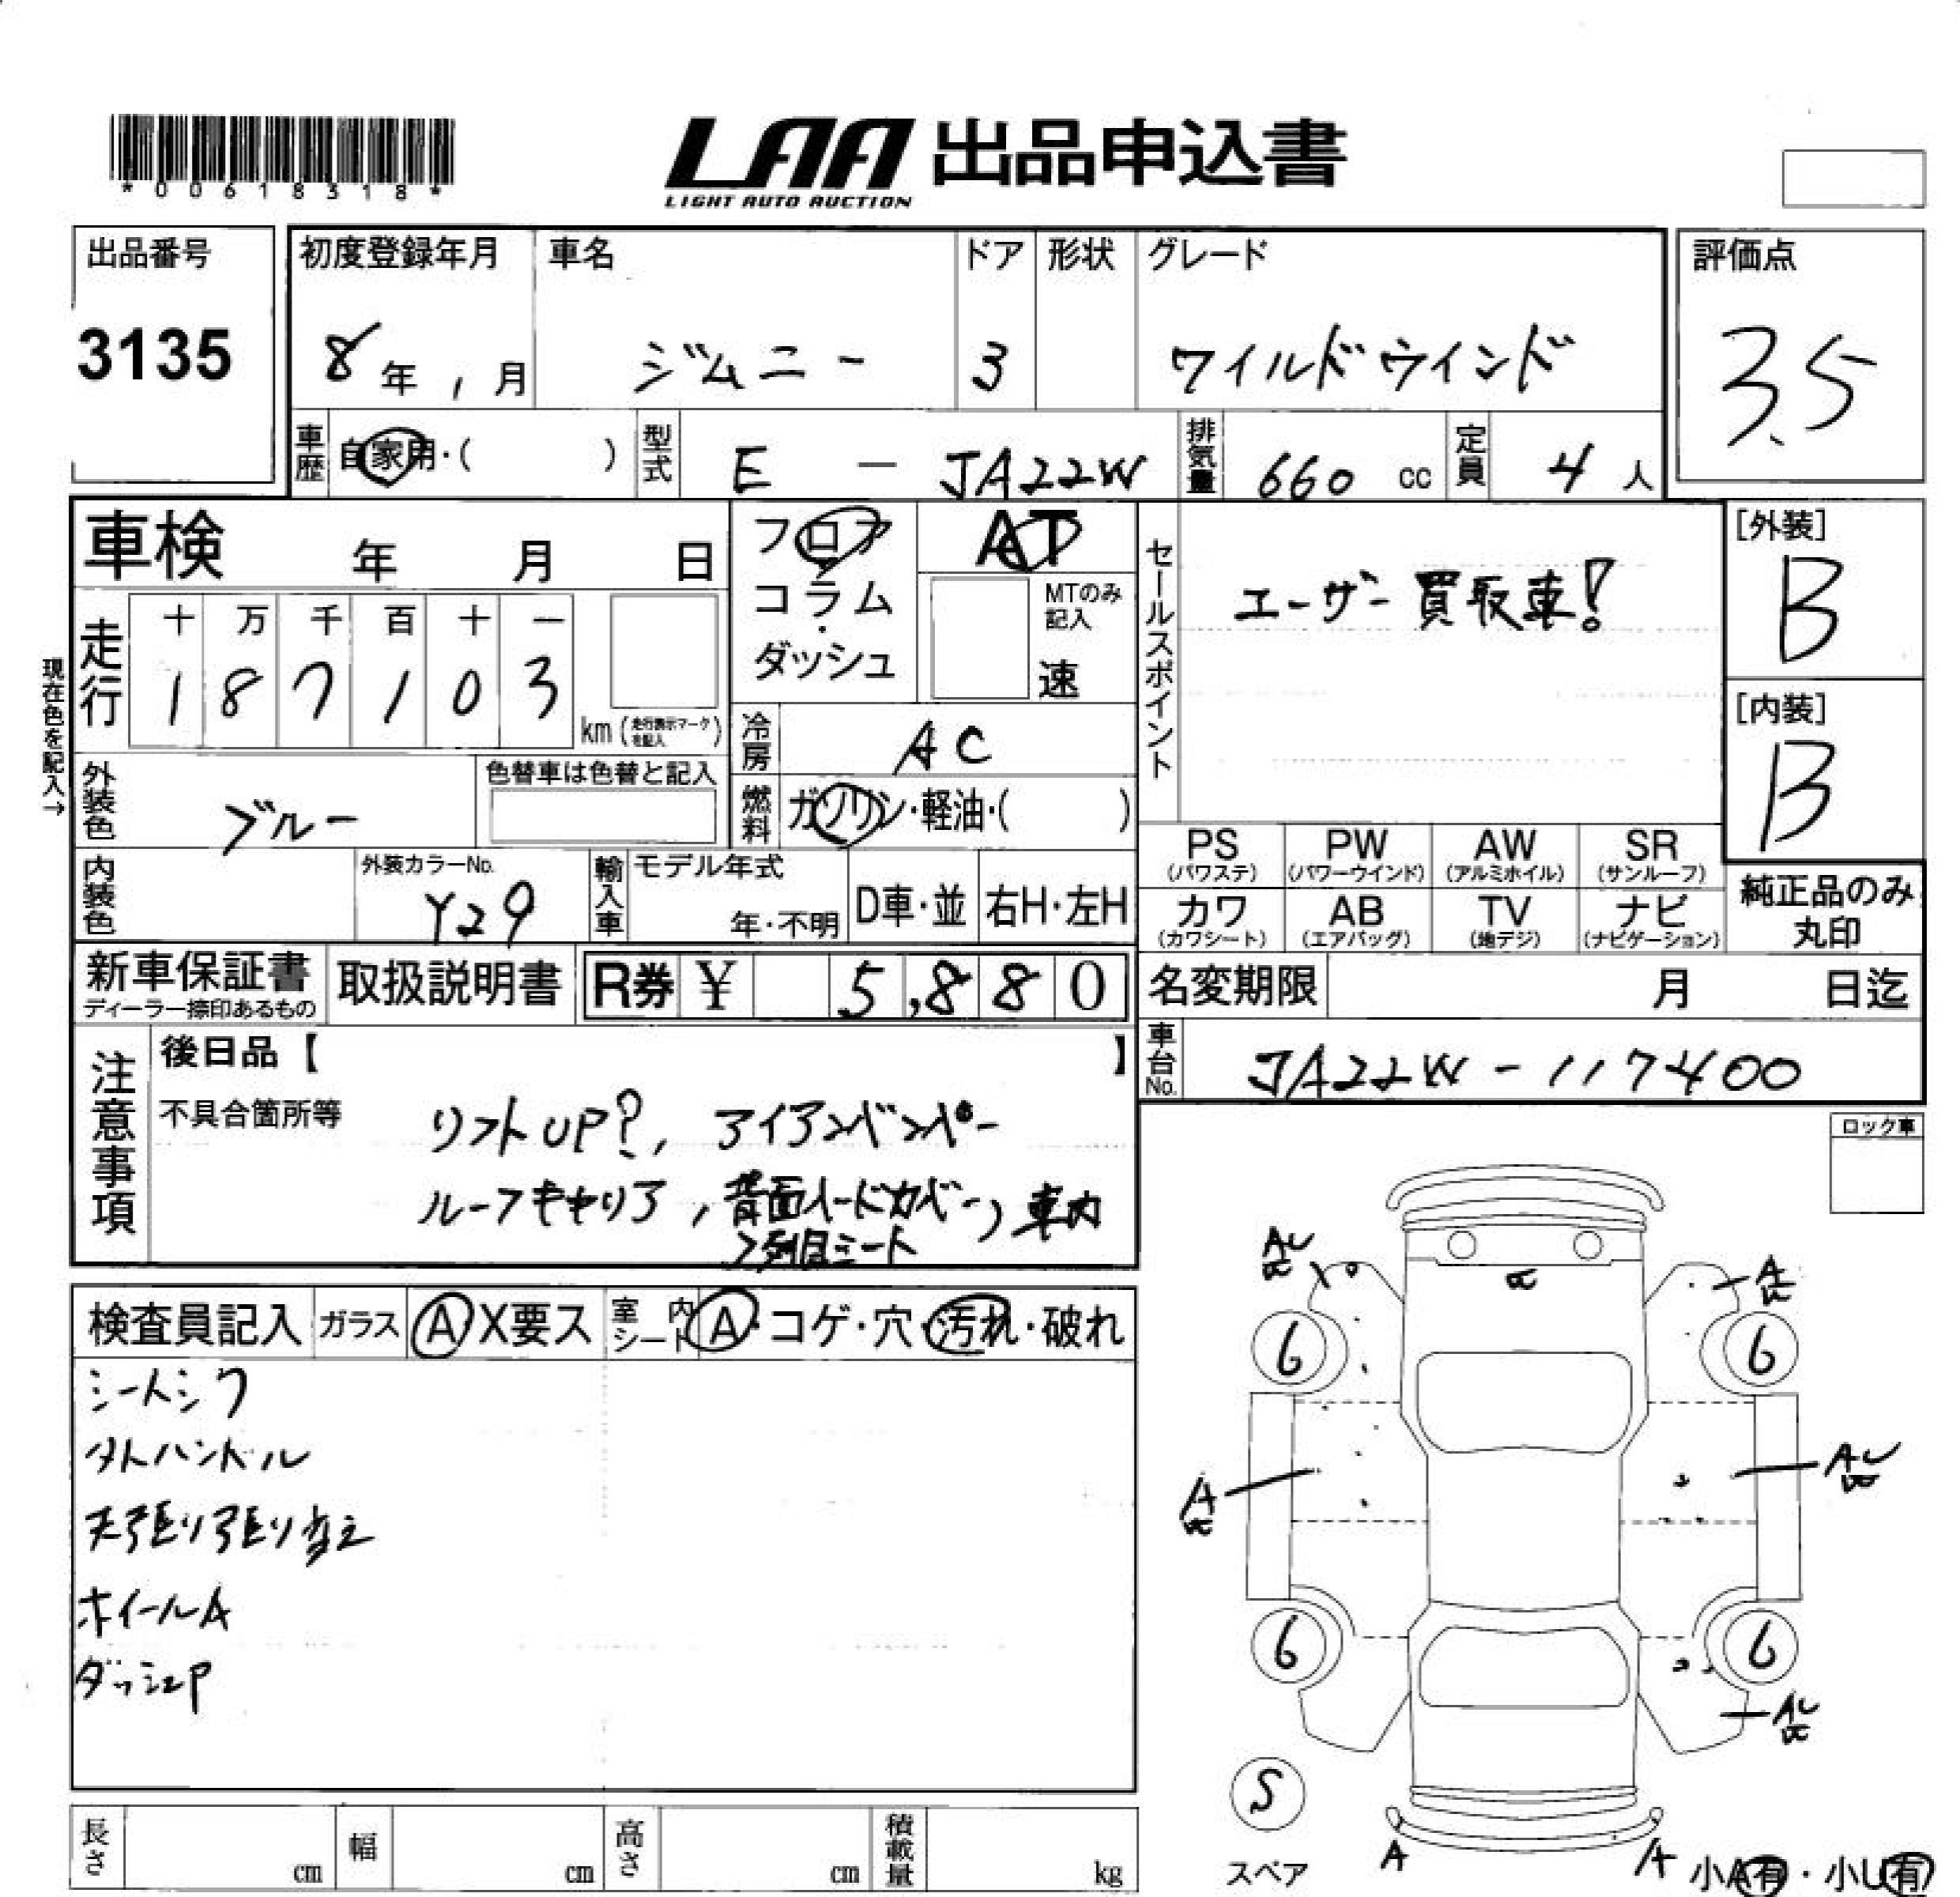 *00618318*
LAA 出品申込書
LIGHT AUTO AUCTION
出品番号
3135
初度登録年月
8年1月
車名
ジムニー
ドア
3
形状
グレード
ワイルドウインド
評価点
3.5
車歴 自家用・( )
型式 E - JA22W
排気量 660 cc
定員 4人
車検 年 月 日
フロア
コラム・
ダッシュ
AT
MTのみ
記入
速
セールスポイント
ユーザー買取車!
[外装]
B
[内装]
B
現在色を記入→
走行
十 万 千 百 十 一
1 8 7 1 0 3
km (走行表示マークを記入)
冷房 AC
外装色 ブルー
色替車は色替と記入
燃料 ガソリン・軽油・( )
内装色
外装カラーNo.
Y29
輸入車
モデル年式
年・不明
D車・並
右H・左H
PS
(パワステ)
PW
(パワーウインド)
AW
(アルミホイル)
SR
(サンルーフ)
カワ
(カワシート)
AB
(エアバッグ)
TV
(地デジ)
ナビ
(ナビゲーション)
純正品のみ
丸印
新車保証書
ディーラー捺印あるもの
取扱説明書
R券 ¥ 5,880
名変期限 月 日迄
車台No. JA22W-117400
注意事項
後日品【 】
不具合箇所等
リフトUP?, アイアンバンパー
ルーフキャリア, 背面ハードカバー, 車内
2列目シート
ロック車
検査員記入
ガラス A X要ス
室内シート A・コゲ・穴・汚れ・破れ
シートシワ
タトハンドル
天張り張り替え
ホイールA
ダッシュP
AU
A
6
6
A
AU
6
6
AU
S
スペア
A
A
小A有・小U有
長さ cm
幅 cm
高さ cm
積載量 kg